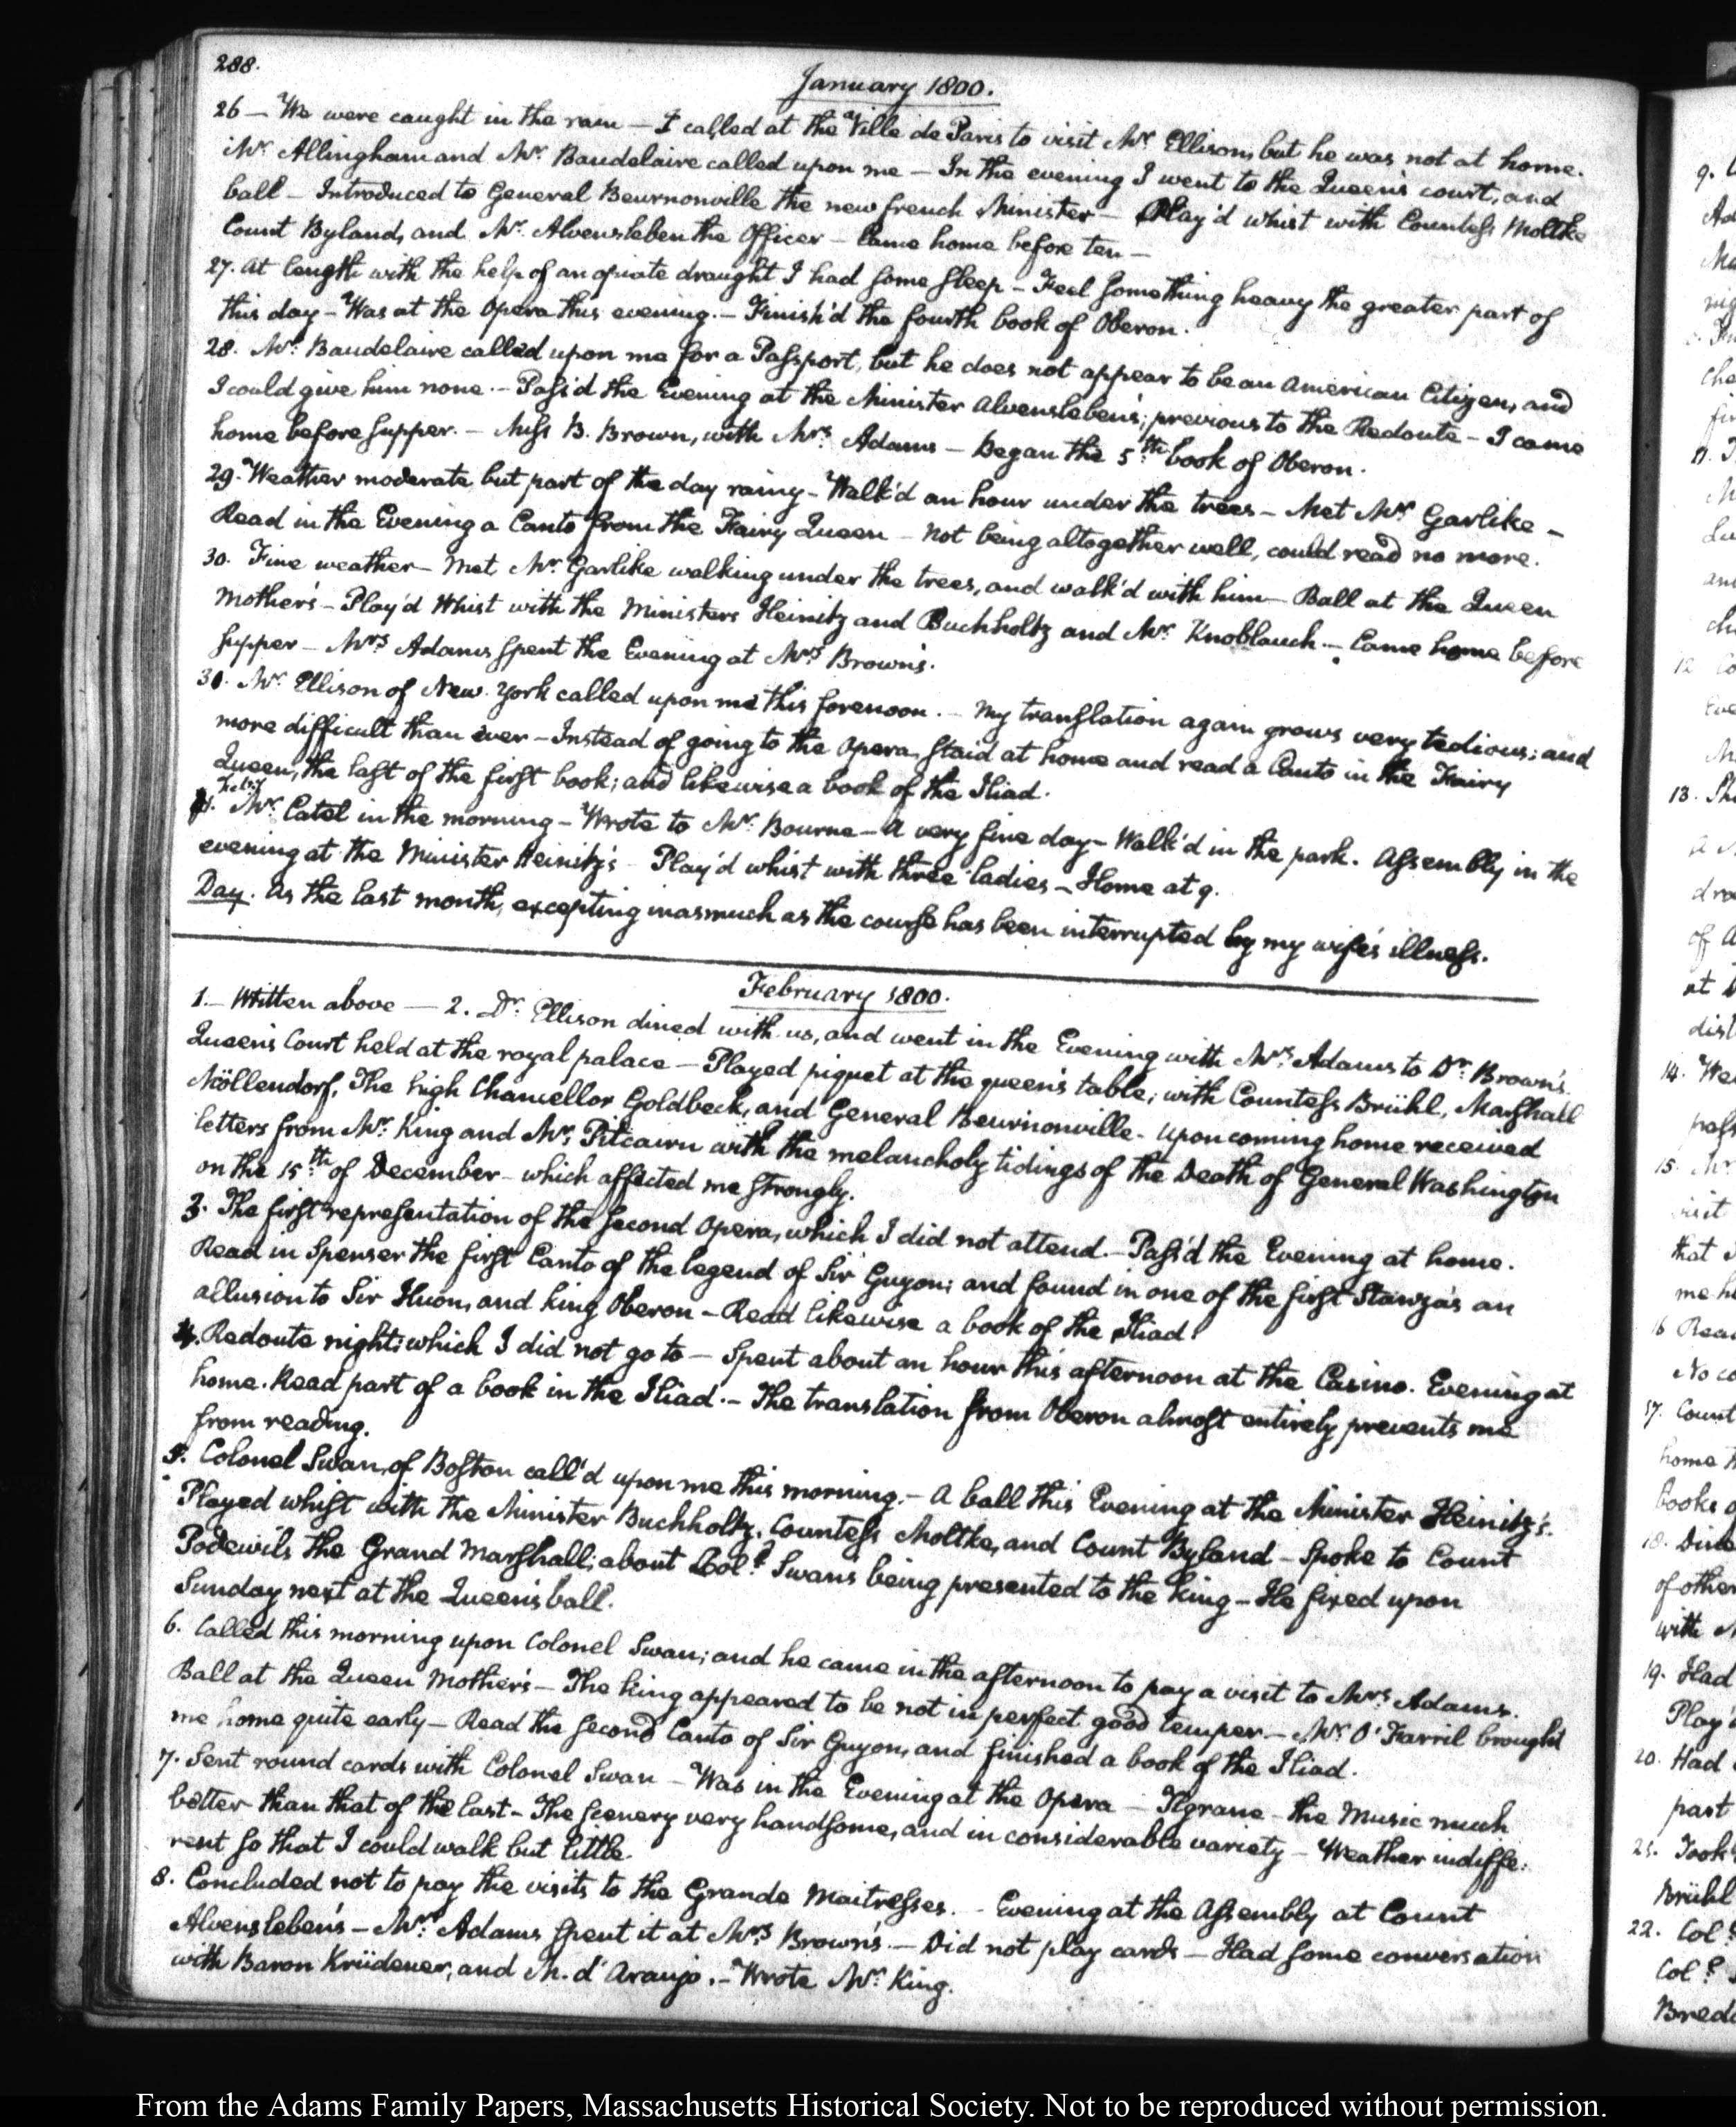 288.
January 1800.
26 — We were caught in the rain — I called at the Ville de Paris to visit Mr. Ellison, but he was not at home.
Mr. Allingham and Mr. Baudelaire called upon me — In the evening I went to the Queen's court, and
ball — Introduced to General Beurnonville the new french Minister — Play'd whist with Countess Moltke
Count Byland, and Mr. Alvensleben the Officer — Came home before ten —
27. At length with the help of an opiate draught I had some sleep — Feel something heavy the greater part of
this day — Was at the Opera this evening. — Finish'd the fourth book of Oberon.
28. Mr. Baudelaire called upon me for a Passport, but he does not appear to be an American Citizen, and
I could give him none. — Pass'd the Evening at the Minister Alvensleben's; previous to the Redoute — I came
home before supper. — Miss B. Brown, with Mrs. Adams — Began the 5th. book of Oberon.
29. Weather moderate but part of the day rainy — Walk'd an hour under the trees — Met Mr. Garlike —
Read in the Evening a Canto from the Fairy Queen — Not being altogether well, could read no more.
30. Fine weather — Met Mr. Garlike walking under the trees, and walk'd with him — Ball at the Queen
Mother's — Play'd Whist with the Ministers Heinitz and Buchholtz and Mr. Knoblauch. — Came home before
supper — Mrs. Adams spent the Evening at Mrs. Brown's.
31. Mr. Ellison of New York called upon me this forenoon. — My translation again grows very tedious; and
more difficult than ever — Instead of going to the Opera staid at home and read a Canto in the Fairy
Queen, the last of the first book; and likewise a book of the Iliad.
Feby
1. Mr. Catel in the morning — Wrote to Mr. Bourne — A very fine day — Walk'd in the park. Assembly in the
evening at the Minister Heinitz's — Play'd whist with three ladies — Home at 9.
Day. As the last month, excepting inasmuch as the course has been interrupted by my wife's illness.
February 1800.
1. — Written above — 2. Dr. Ellison dined with us, and went in the Evening with Mrs. Adams to Dr. Brown's.
Queen's Court held at the royal palace — Played piquet at the queen's table; with Countess Brühl, Marshall
Möllendorf, The high Chancellor Goldbeck, and General Beurnonville — Upon coming home received
letters from Mr. King and Mr. Pitcairn with the melancholy tidings of the Death of General Washington
on the 15th. of December — which affected me strongly.
3. The first representation of the second Opera, which I did not attend. — Pass'd the Evening at home.
Read in Spenser the first Canto of the legend of Sir Guyon; and found in one of the first Stanza's an
allusion to Sir Huon, and King Oberon — Read likewise a book of the Iliad.
4. Redoute night; which I did not go to — Spent about an hour this afternoon at the Casino. Evening at
home. Read part of a book in the Iliad. — The translation from Oberon almost entirely prevents me
from reading.
5. Colonel Swan, of Boston call'd upon me this morning. — A ball this Evening at the Minister Heinitz's.
Played whist with the Minister Buchholtz, Countess Moltke, and Count Byland — Spoke to Count
Podewils the Grand Marshall; about Col.? Swan's being presented to the King — He fixed upon
Sunday next at the Queen's ball.
6. Called this morning upon Colonel Swan; and he came in the afternoon to pay a visit to Mrs. Adams.
Ball at the Queen Mother's — The King appeared to be not in perfect good temper. — Mr. O'Farril brought
me home quite early — Read the second Canto of Sir Guyon, and finished a book of the Iliad.
7. Sent round cards with Colonel Swan — Was in the Evening at the Opera — Tigrane — the Music much
better than that of the last — The scenery very handsome, and in considerable variety — Weather indiffe:
rent so that I could walk but little.
8. Concluded not to pay the visits to the Grande Maitresses. — Evening at the Assembly at Count
Alvensleben's — Mrs. Adams spent it at Mrs. Brown's. — Did not play cards — Had some conversation
with Baron Krüdener, and M. d'Araujo. — Wrote Mr. King.
From the Adams Family Papers, Massachusetts Historical Society. Not to be reproduced without permission.